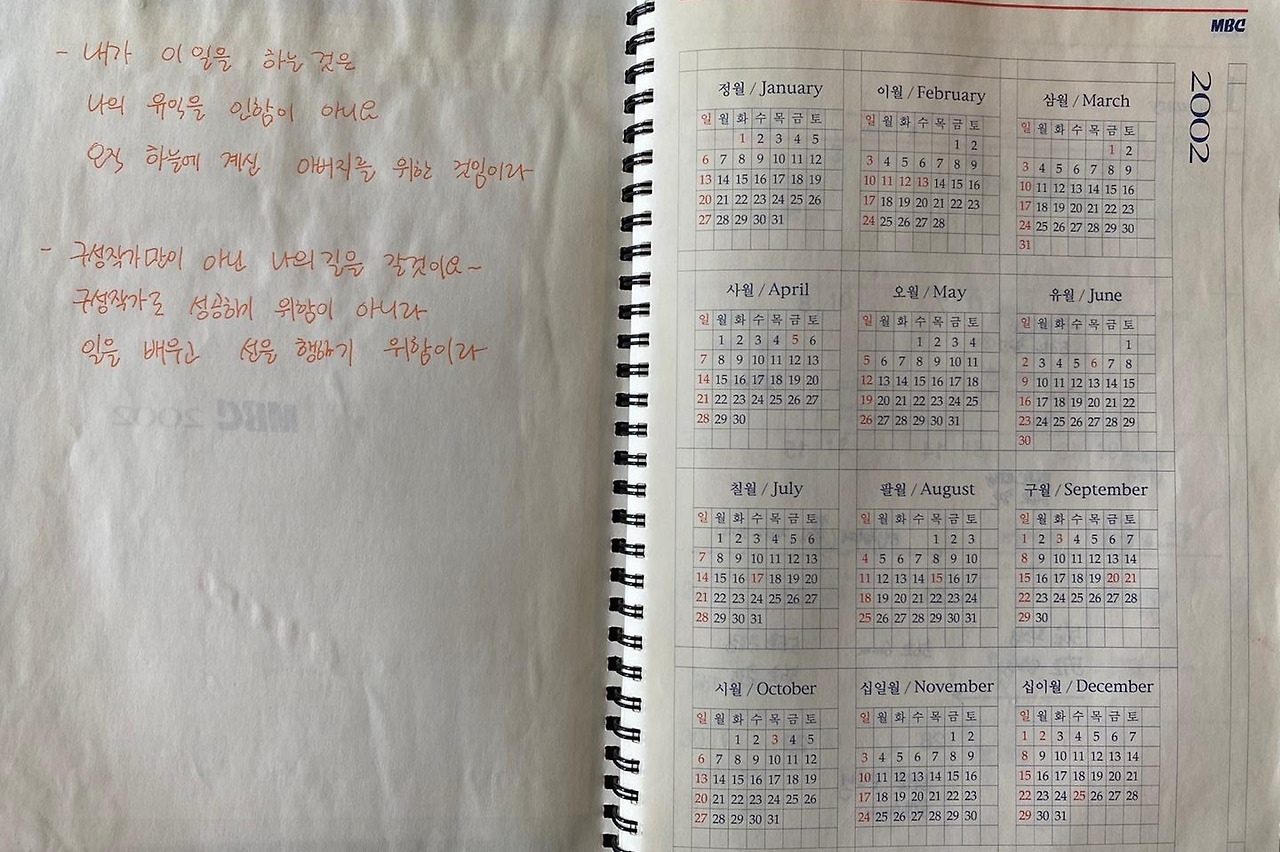 - 내가 이 일을 하는 것은
나의 유익을 인함이 아니요
오직 하늘에 계신 아버지를 위한 것임이라
- 구성작가만이 아닌 나의 길을 갈것이요~
구성작가로 성공하기 위함이 아니라
일을 배우고 선을 행하기 위함이라
MBC
2002
정월 / January
일 월 화 수 목 금 토
1 2 3 4 5
6 7 8 9 10 11 12
13 14 15 16 17 18 19
20 21 22 23 24 25 26
27 28 29 30 31
이월 / February
일 월 화 수 목 금 토
1 2
3 4 5 6 7 8 9
10 11 12 13 14 15 16
17 18 19 20 21 22 23
24 25 26 27 28
삼월 / March
일 월 화 수 목 금 토
1 2
3 4 5 6 7 8 9
10 11 12 13 14 15 16
17 18 19 20 21 22 23
24 25 26 27 28 29 30
31
사월 / April
일 월 화 수 목 금 토
1 2 3 4 5 6
7 8 9 10 11 12 13
14 15 16 17 18 19 20
21 22 23 24 25 26 27
28 29 30
오월 / May
일 월 화 수 목 금 토
1 2 3 4
5 6 7 8 9 10 11
12 13 14 15 16 17 18
19 20 21 22 23 24 25
26 27 28 29 30 31
유월 / June
일 월 화 수 목 금 토
1
2 3 4 5 6 7 8
9 10 11 12 13 14 15
16 17 18 19 20 21 22
23 24 25 26 27 28 29
30
칠월 / July
일 월 화 수 목 금 토
1 2 3 4 5 6
7 8 9 10 11 12 13
14 15 16 17 18 19 20
21 22 23 24 25 26 27
28 29 30 31
팔월 / August
일 월 화 수 목 금 토
1 2 3
4 5 6 7 8 9 10
11 12 13 14 15 16 17
18 19 20 21 22 23 24
25 26 27 28 29 30 31
구월 / September
일 월 화 수 목 금 토
1 2 3 4 5 6 7
8 9 10 11 12 13 14
15 16 17 18 19 20 21
22 23 24 25 26 27 28
29 30
시월 / October
일 월 화 수 목 금 토
1 2 3 4 5
6 7 8 9 10 11 12
13 14 15 16 17 18 19
20 21 22 23 24 25 26
27 28 29 30 31
십일월 / November
일 월 화 수 목 금 토
1 2
3 4 5 6 7 8 9
10 11 12 13 14 15 16
17 18 19 20 21 22 23
24 25 26 27 28 29 30
십이월 / December
일 월 화 수 목 금 토
1 2 3 4 5 6 7
8 9 10 11 12 13 14
15 16 17 18 19 20 21
22 23 24 25 26 27 28
29 30 31